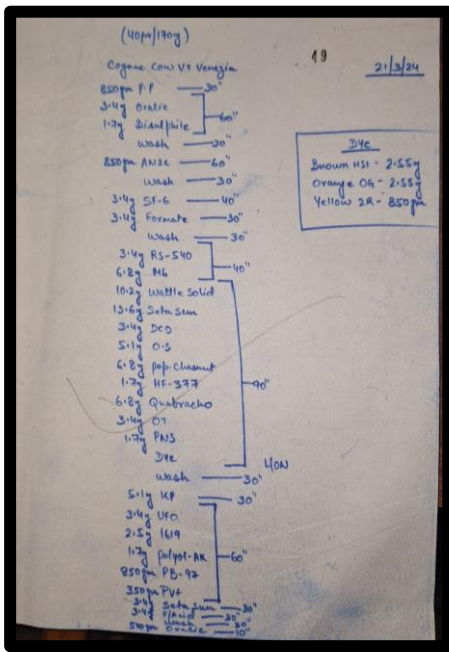 (40pn/170g)
49
21/3/24
Cognac Cow VT Venezia
850gm P.P — 30"
3.4g Oxalic
1.7g Bisulphite
60"
Wash — 30"
850gm AN2C — 60"
Wash — 30"
3.4g SF-6 — 40"
3.4g Formate — 30"
Wash — 30"
3.4g RS-540
6.8g M6
40"
10.2g Wattle Solid
13.6g Seta Sun
3.4g DCO
5.1g O.S
6.8g pop. Chesnut
1.7g HF-377
6.8g Quabracho
3.4g OT
1.7g PNS
Dye
90"
40N
Wash — 30"
5.1g KP — 30"
3.4g UFO
2.5g 1619
1.7g Polyol-AK
850gm PB-97
350gm PV+
60"
3.4g Seta Sun — 30"
3.4g F/Acid — 30"
Wash — 30"
500gm Oxalic — 10"
Dye
Brown HS1 - 2.55g
Orange OG - 2.55g
Yellow 2R - 850gm